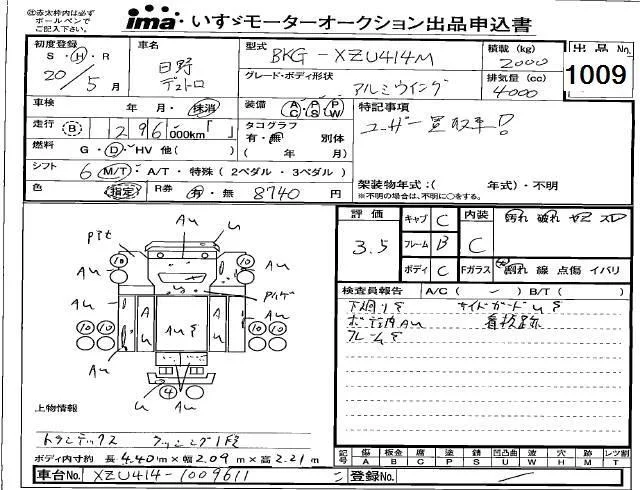 ㊟赤太枠内は必ず
ボールペンで
ご記入下さい。
ima いすゞモーターオークション出品申込書
初度登録 S・H・R 20/5月
車名 日野 デュトロ
型式 BKG-XZU414M
積載(kg) 2000
出品No. 1009
グレード・ボディ形状 アルミウイング
排気量(cc) 4000
車検 年 月・抹消
装備 AC PS PW
特記事項
ユーザー買取車!
走行 B 1296 000km「 」
タコグラフ 有・無 別体
( 年 月)
燃料 G・D・HV 他( )
シフト 6 M/T・A/T・特殊(2ペダル・3ペダル)
架装物年式:( 年式)・不明
※不明の場合は、不明に○をする。
色 指定 R券 有・無 8740 円
評価 3.5
キャブ C
フレーム B
ボディ C
内装 C
汚れ 破れ ヤニ スレ
Fガラス 割れ 線 点傷 イバリ
検査員報告 A/C( ~ ) B/T( )
下廻りS サイドガードUS
ボデ内AU 看板跡
フレームS
Pit AU U
10 10
AU AU
10 10 A U AUS A U 10 10
AU AU
U 4 AU
上物情報
トランテックス ラッシング1段
ボディ内寸約 長4.40m×幅2.09m×高2.21m
記号 傷A 板金B 腐C 塗P 錆S 凹凸曲U 波W 穴H 跡M レンズ割T
車台No. XZU414-1009611
登録No.